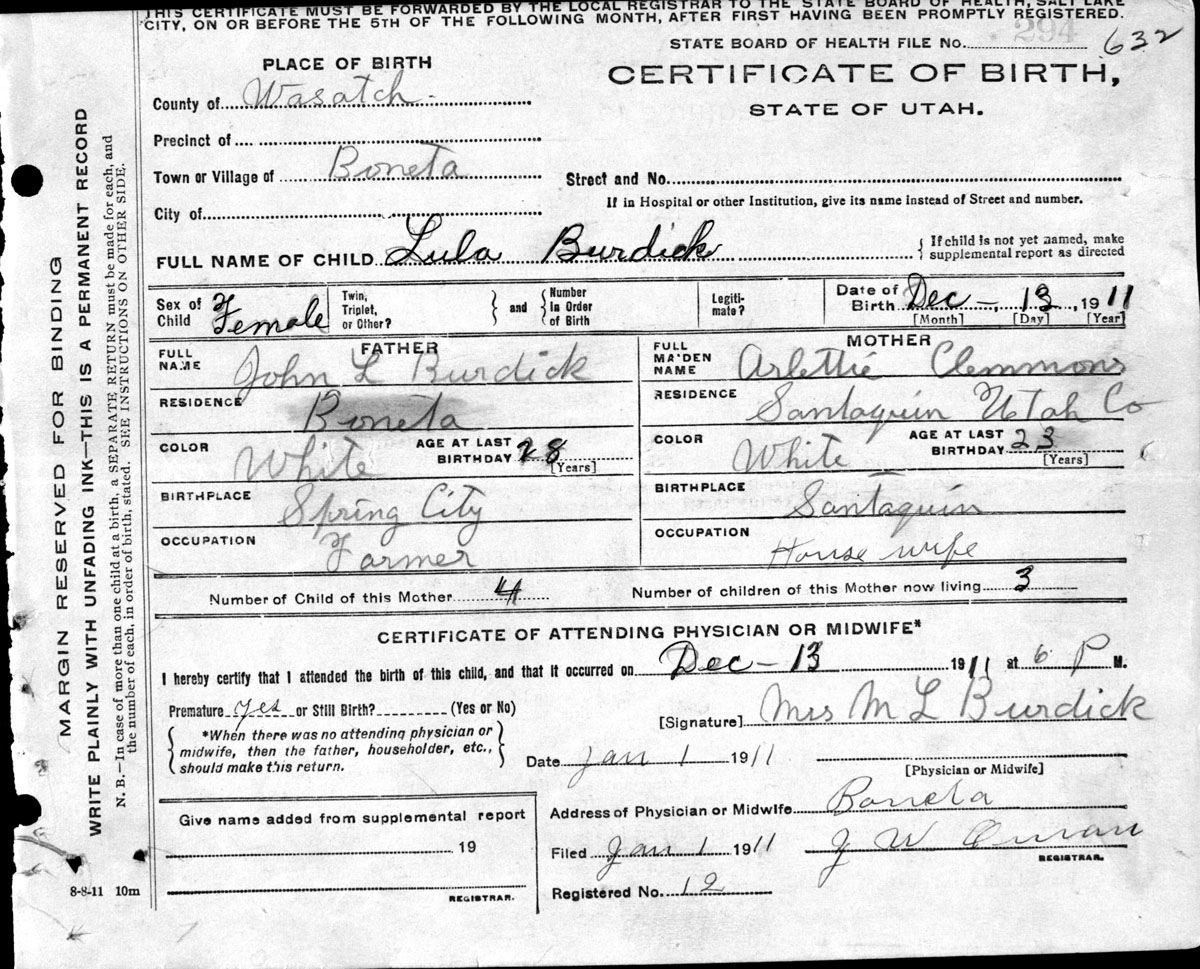 THIS CERTIFICATE MUST BE FORWARDED BY THE LOCAL REGISTRAR TO THE STATE BOARD OF HEALTH, SALT LAKE
CITY, ON OR BEFORE THE 5TH OF THE FOLLOWING MONTH, AFTER FIRST HAVING BEEN PROMPTLY REGISTERED.
STATE BOARD OF HEALTH FILE No. 294 632
PLACE OF BIRTH
CERTIFICATE OF BIRTH,
STATE OF UTAH.
County of Wasatch
Precinct of
Town or Village of Boneta
Street and No.
If in Hospital or other Institution, give its name instead of Street and number.
City of
FULL NAME OF CHILD Lula Burdick { If child is not yet named, make supplemental report as directed
Sex of Child Female Twin, Triplet, or Other? } and { Number In Order of Birth Legiti-mate? Date of Birth Dec - 13, 1911
[Month] [Day] [Year]
FATHER MOTHER
FULL NAME John L Burdick FULL MAIDEN NAME Arlettie Clemmons
RESIDENCE Boneta RESIDENCE Santaquin Utah Co
COLOR White AGE AT LAST BIRTHDAY 28 [Years] COLOR White AGE AT LAST BIRTHDAY 23 [Years]
BIRTHPLACE Spring City BIRTHPLACE Santaquin
OCCUPATION Farmer OCCUPATION House wife
Number of Child of this Mother 4 Number of children of this Mother now living 3
CERTIFICATE OF ATTENDING PHYSICIAN OR MIDWIFE*
I hereby certify that I attended the birth of this child, and that it occurred on Dec - 13 1911 at 6 P M.
Premature yes or Still Birth? (Yes or No)
[Signature] Mrs M L Burdick
{ *When there was no attending physician or
midwife, then the father, householder, etc.,
should make this return. }
Date Jan 1 1911
[Physician or Midwife]
Address of Physician or Midwife Boneta
Give name added from supplemental report
19
Filed Jan 1 1911 J W
REGISTRAR.
Registered No. 12
8-8-11 10m
REGISTRAR.
MARGIN RESERVED FOR BINDING
WRITE PLAINLY WITH UNFADING INK—THIS IS A PERMANENT RECORD
N. B.—In case of more than one child at a birth, a SEPARATE RETURN must be made for each, and
the number of each, in order of birth, stated. SEE INSTRUCTIONS ON OTHER SIDE.